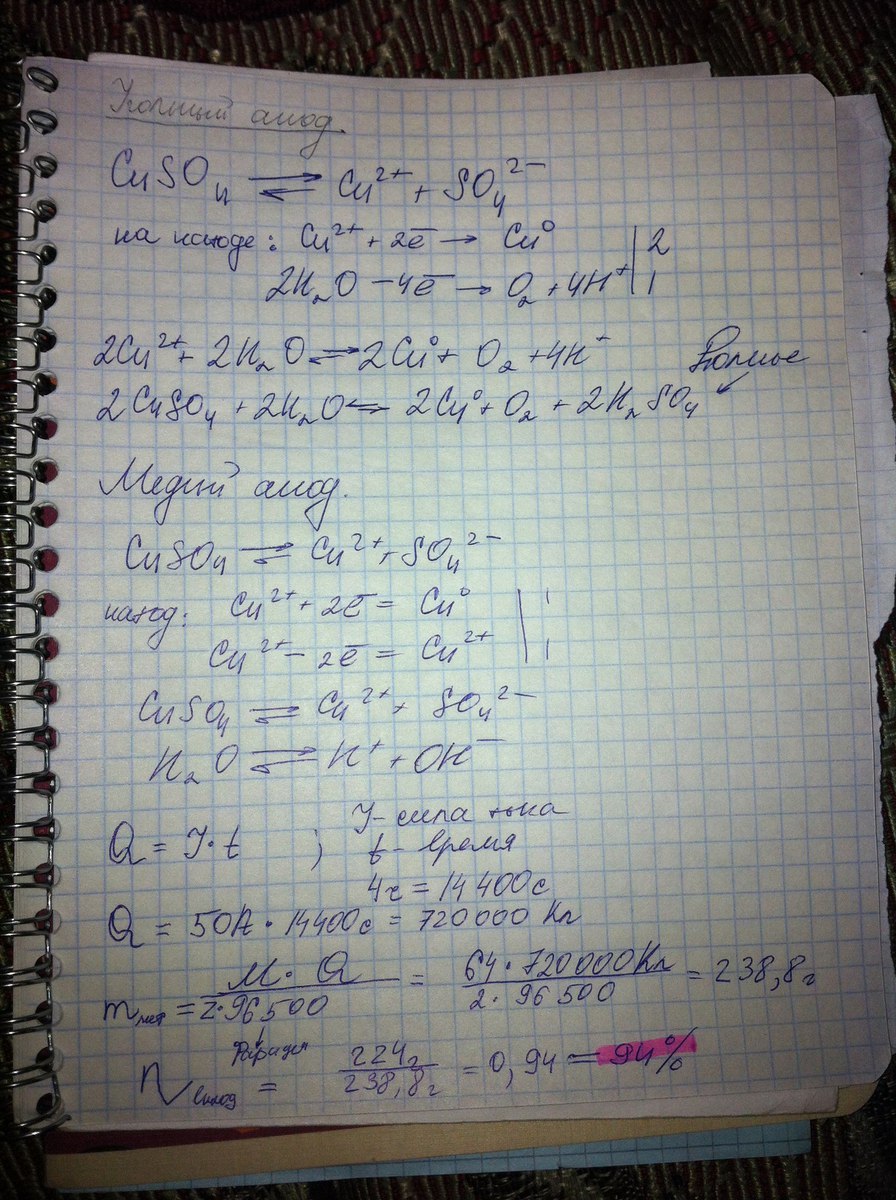 анод.
CuSO₄ ⇌ Cu²⁺ + SO₄²⁻
на катоде: Cu²⁺ + 2e̅ → Cu⁰ | 2
2H₂O − 4e̅ → O₂ + 4H⁺ | 1
2Cu²⁺ + 2H₂O ⇌ 2Cu⁰ + O₂ + 4H⁺
2CuSO₄ + 2H₂O ⇌ 2Cu⁰ + O₂ + 2H₂SO₄
Медный анод.
CuSO₄ ⇌ Cu²⁺ + SO₄²⁻
катод: Cu²⁺ + 2e̅ = Cu⁰ | 1
Cu²⁺ − 2e̅ = Cu²⁺ | 1
CuSO₄ ⇌ Cu²⁺ + SO₄²⁻
H₂O ⇌ H⁺ + OH⁻
Q = J · t ; J - сила тока
t - время
4ч = 14400с
Q = 50A · 14400с = 720000 Кл
m = M · Q / Z · 96500 = 64 · 720000Кл / 2 · 96500 = 238,8г
Фарадея
η = 224г / 238,8г = 0,94 = 94%